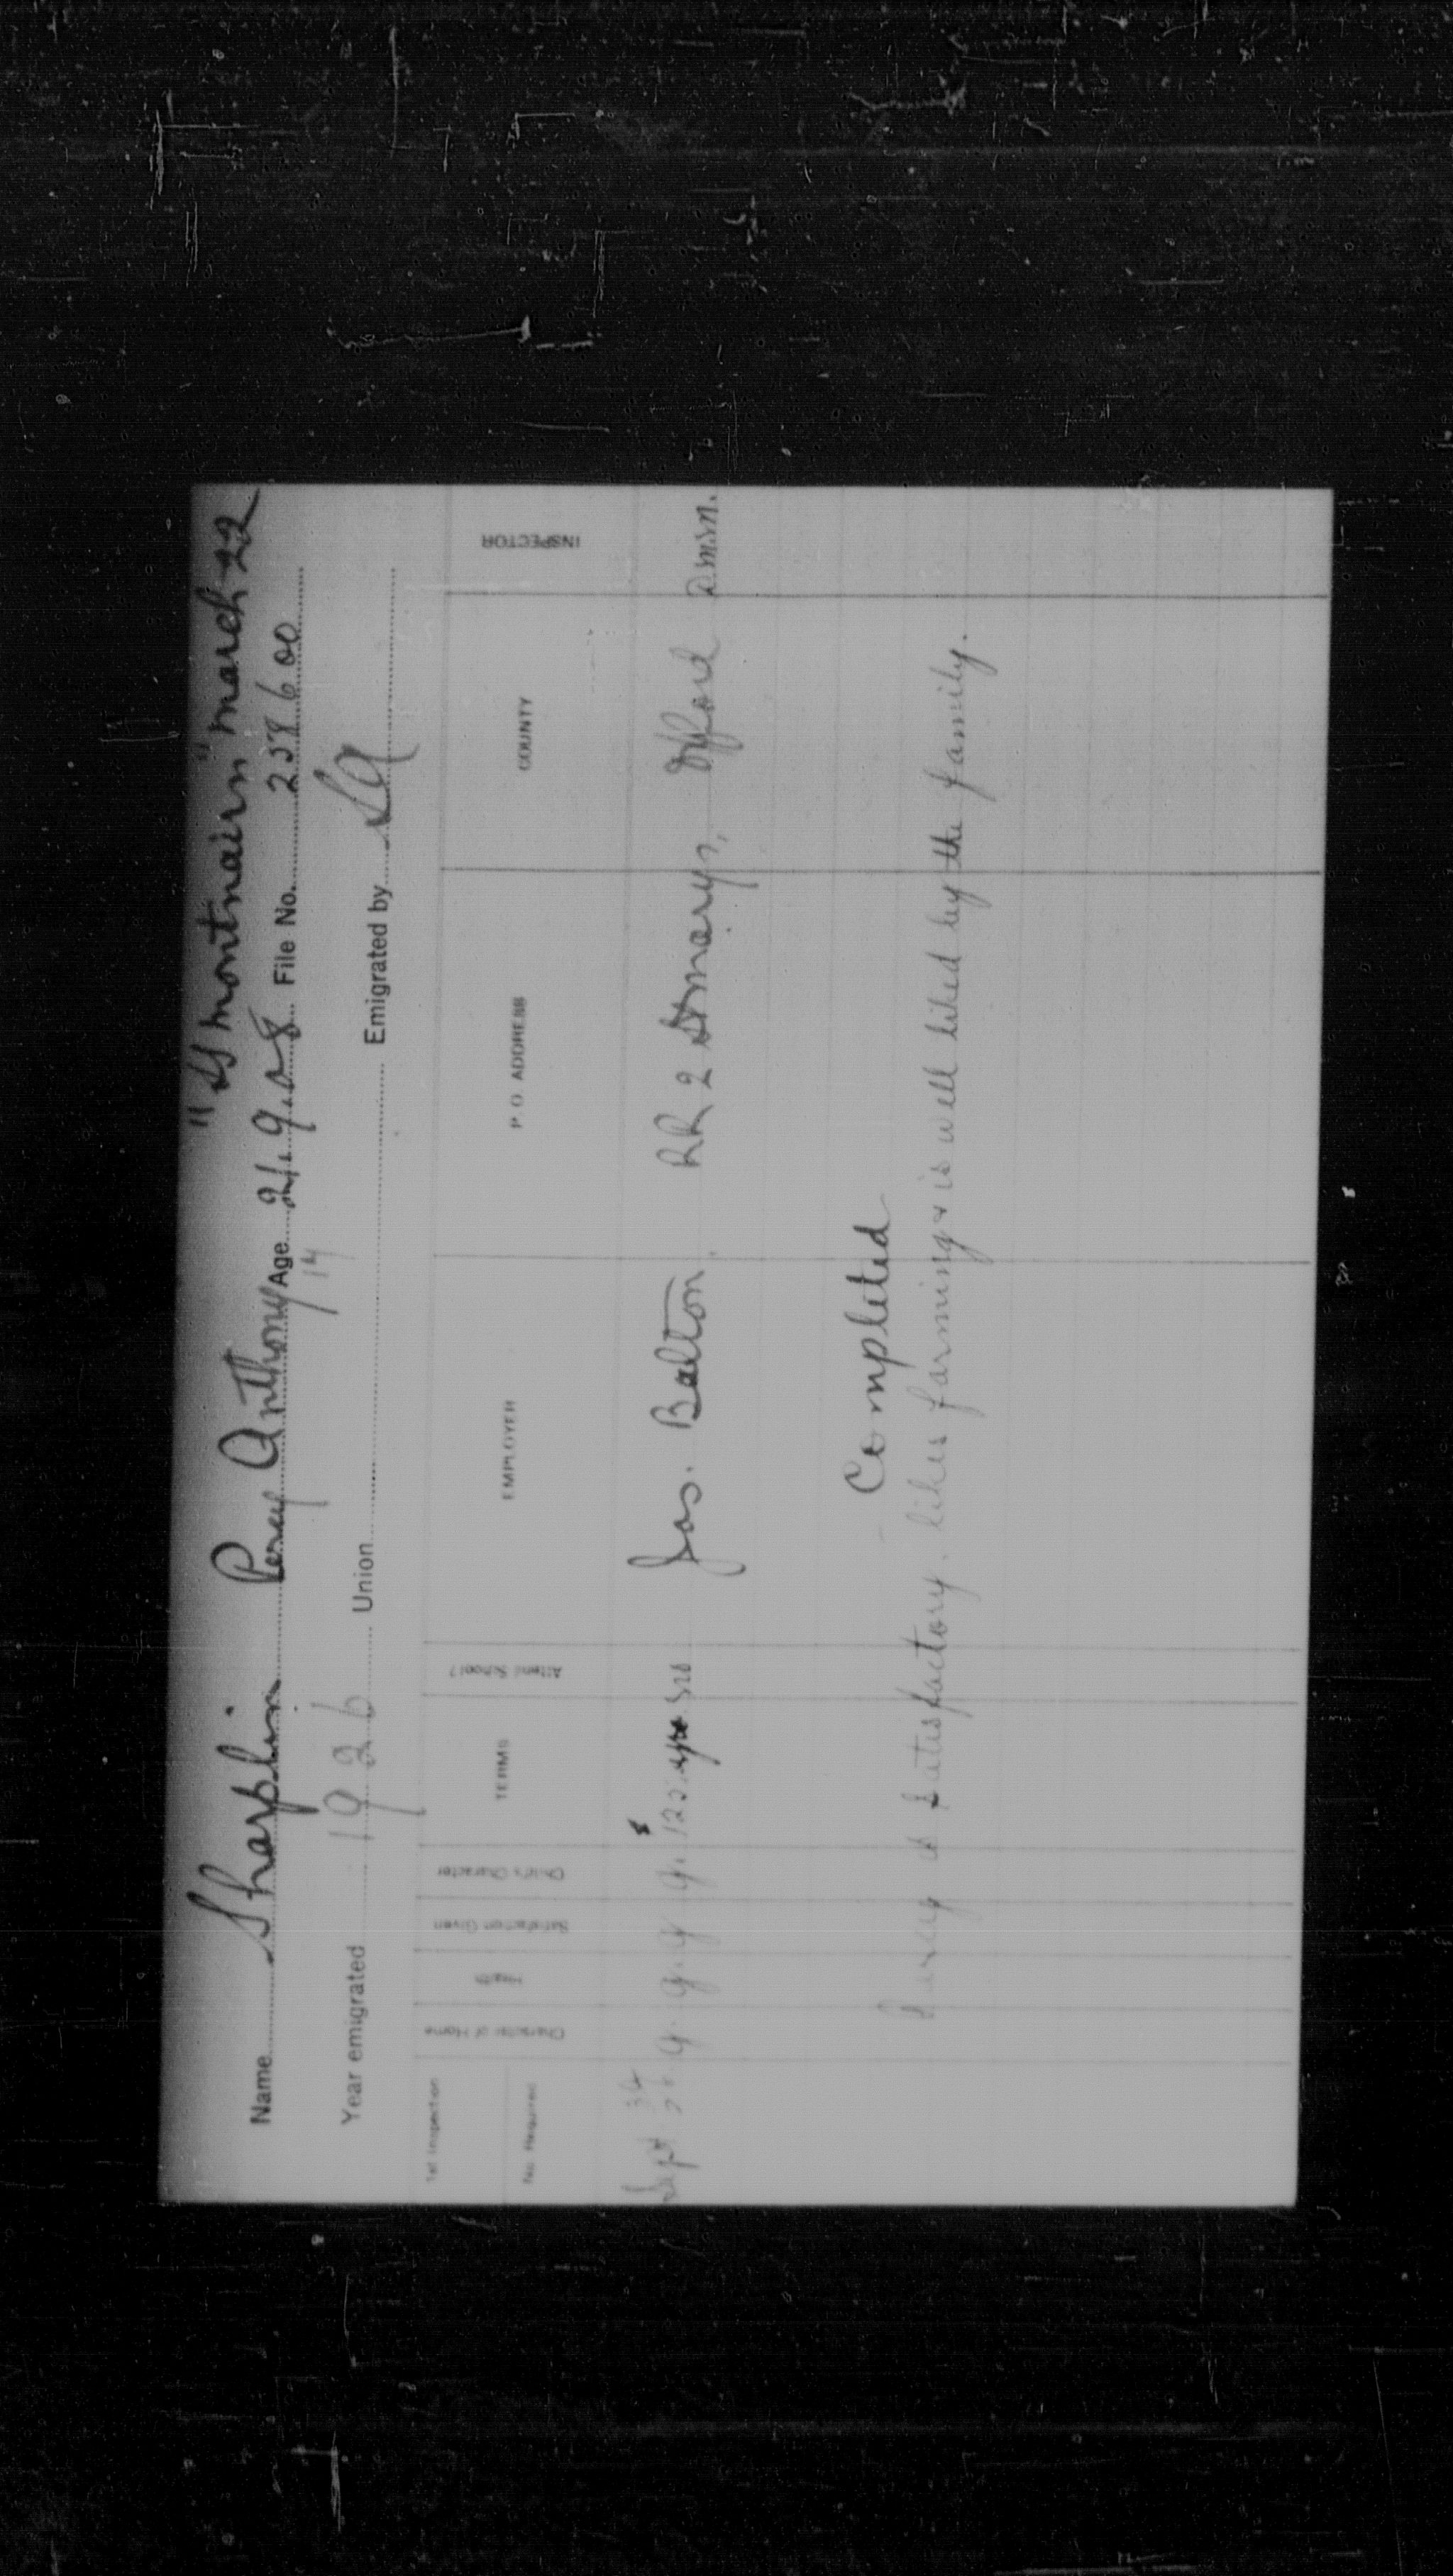 "SS Montnairn" March 22
Name Sharplin Percy Anthony Age 21.9.08 File No. 258600
14
Year emigrated 1926 Union Emigrated by SA
1st Inspection No. Required Character of Home Health Satisfaction Given Child's Character TERMS Attend School? EMPLOYER P.O. ADDRESS COUNTY INSPECTOR
Sept G. G. G G. $ 125. yr no Jas. Balton RR 2 St Marys, Oxford D.M.N.
Completed
Percy is satisfactory. likes farming & is well liked by the family.